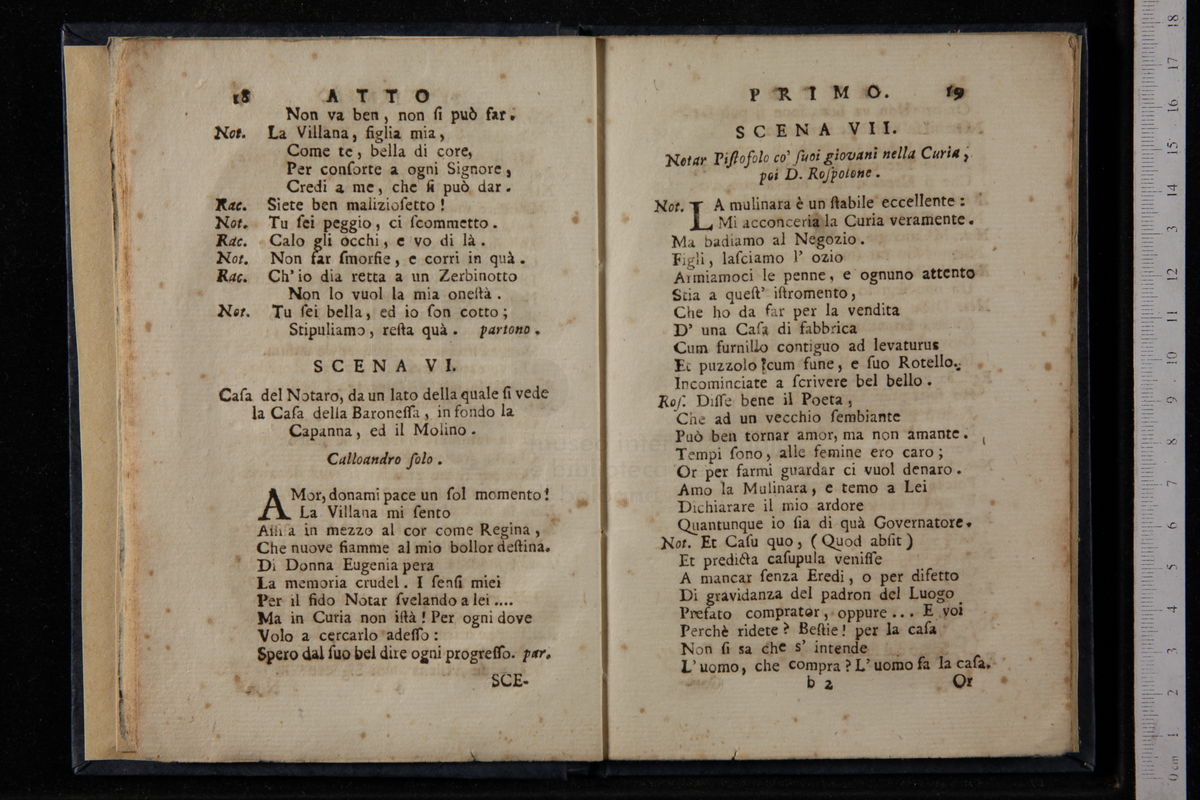 18 ATTO
Non va ben, non ſi può far.
Not. La Villana, figlia mia,
Come te, bella di core,
Per conſorte a ogni Signore,
Credi a me, che ſi può dar.
Rac. Siete ben malizioſetto!
Not. Tu ſei peggio, ci ſcommetto.
Rac. Calo gli occhi, e vo di là.
Not. Non far ſmorfie, e corri in quà.
Rac. Ch'io dia retta a un Zerbinotto
Non lo vuol la mia oneſtà.
Not. Tu ſei bella, ed io ſon cotto;
Stipuliamo, reſta quà. partono.
SCENA VI.
Caſa del Notaro, da un lato della quale ſi vede
la Caſa della Baroneſſa, in fondo la
Capanna, ed il Molino.
Calloandro ſolo.
AMor, donami pace un ſol momento!
La Villana mi ſento
Aſſiſa in mezzo al cor come Regina,
Che nuove fiamme al mio bollor deſtina.
Di Donna Eugenia pera
La memoria crudel. I ſenſi miei
Per il fido Notar ſvelando a lei ....
Ma in Curia non iſtà! Per ogni dove
Volo a cercarlo adeſſo:
Spero dal ſuo bel dire ogni progreſſo. par.
SCE-
PRIMO. 19
SCENA VII.
Notar Piſtofolo co' ſuoi giovani nella Curia,
poi D. Roſpolone.
Not. LA mulinara è un ſtabile eccellente:
Mi acconceria la Curia veramente.
Ma badiamo al Negozio.
Figli, laſciamo l' ozio
Armiamoci le penne, e ognuno attento
Stia a queſt' iſtromento,
Che ho da far per la vendita
D' una Caſa di fabbrica
Cum furnillo contiguo ad levaturus
Et puzzolo cum fune, e ſuo Rotello.
Incominciate a ſcrivere bel bello.
Roſ. Diſſe bene il Poeta,
Che ad un vecchio ſembiante
Può ben tornar amor, ma non amante.
Tempi ſono, alle femine ero caro;
Or per farmi guardar ci vuol denaro.
Amo la Mulinara, e temo a Lei
Dichiarare il mio ardore
Quantunque io ſia di quà Governatore.
Not. Et Caſu quo, (Quod abſit)
Et predicta caſupula veniſſe
A mancar ſenza Eredi, o per difetto
Di gravidanza del padron del Luogo
Prefato comprator, oppure ... E voi
Perchè ridete? Beſtie! per la caſa
Non ſi sa che s' intende
L'uomo, che compra? L'uomo fa la caſa.
b 2 Or
0 cm 1 2 3 4 5 6 7 8 9 10 11 12 3 14 15 16 17 18